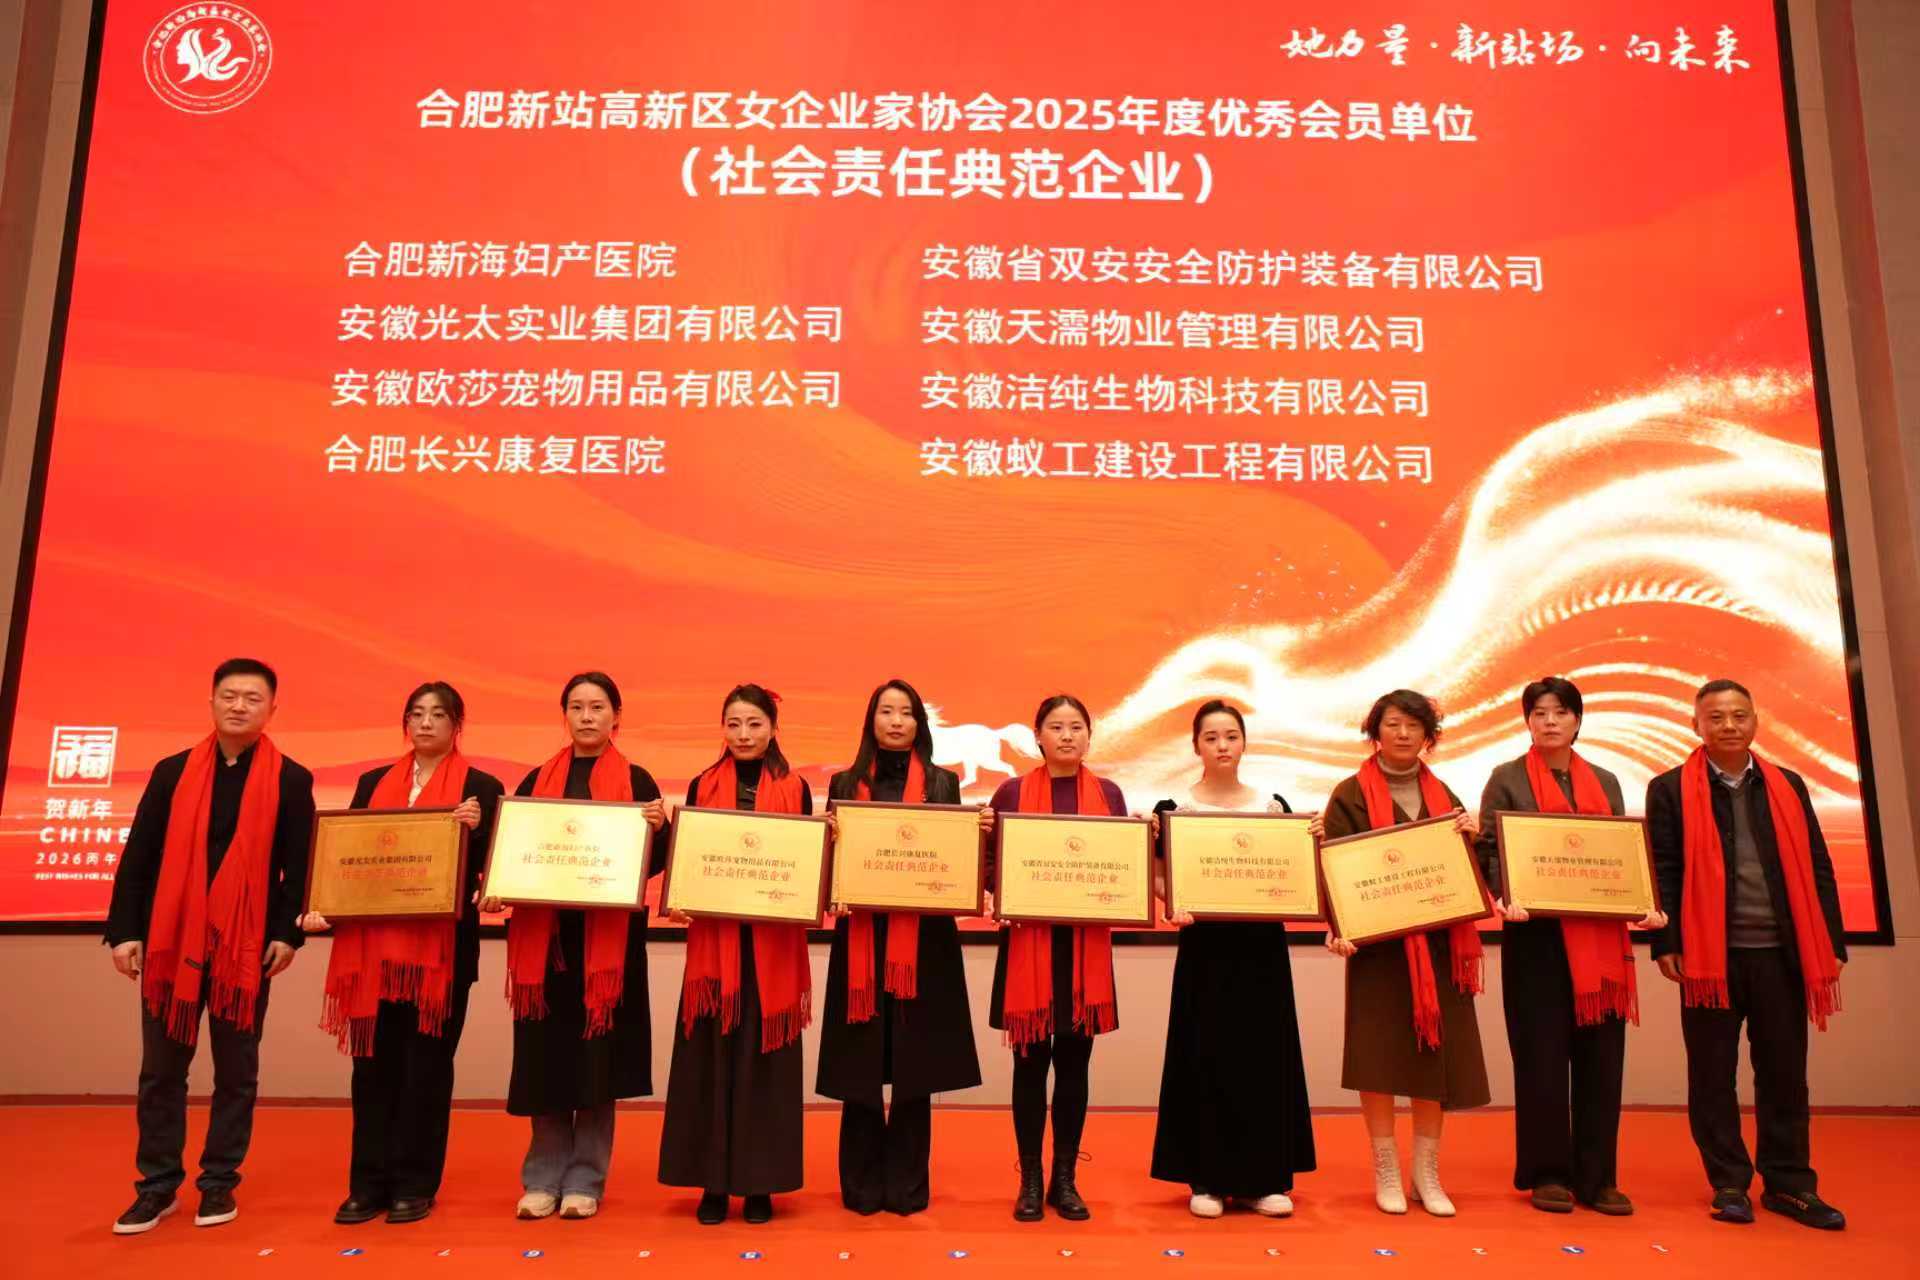 合肥新站高新区女企业家协会
她力量·新站场·向未来
合肥新站高新区女企业家协会2025年度优秀会员单位
（社会责任典范企业）
合肥新海妇产医院
安徽省双安安全防护装备有限公司
安徽光太实业集团有限公司
安徽天濡物业管理有限公司
安徽欧莎宠物用品有限公司
安徽洁纯生物科技有限公司
合肥长兴康复医院
安徽蚁工建设工程有限公司
福
贺新年
CHINE
2026丙午
BEST WISHES FOR ALL
安徽光太实业集团有限公司
社会责任典范企业
合肥新海妇产医院
社会责任典范企业
安徽欧莎宠物用品有限公司
社会责任典范企业
合肥长兴康复医院
社会责任典范企业
安徽省双安安全防护装备有限公司
社会责任典范企业
安徽洁纯生物科技有限公司
社会责任典范企业
安徽蚁工建设工程有限公司
社会责任典范企业
安徽天濡物业管理有限公司
社会责任典范企业
8 7 7 6 6 5 5 4 4 3 3 2 2 1 1